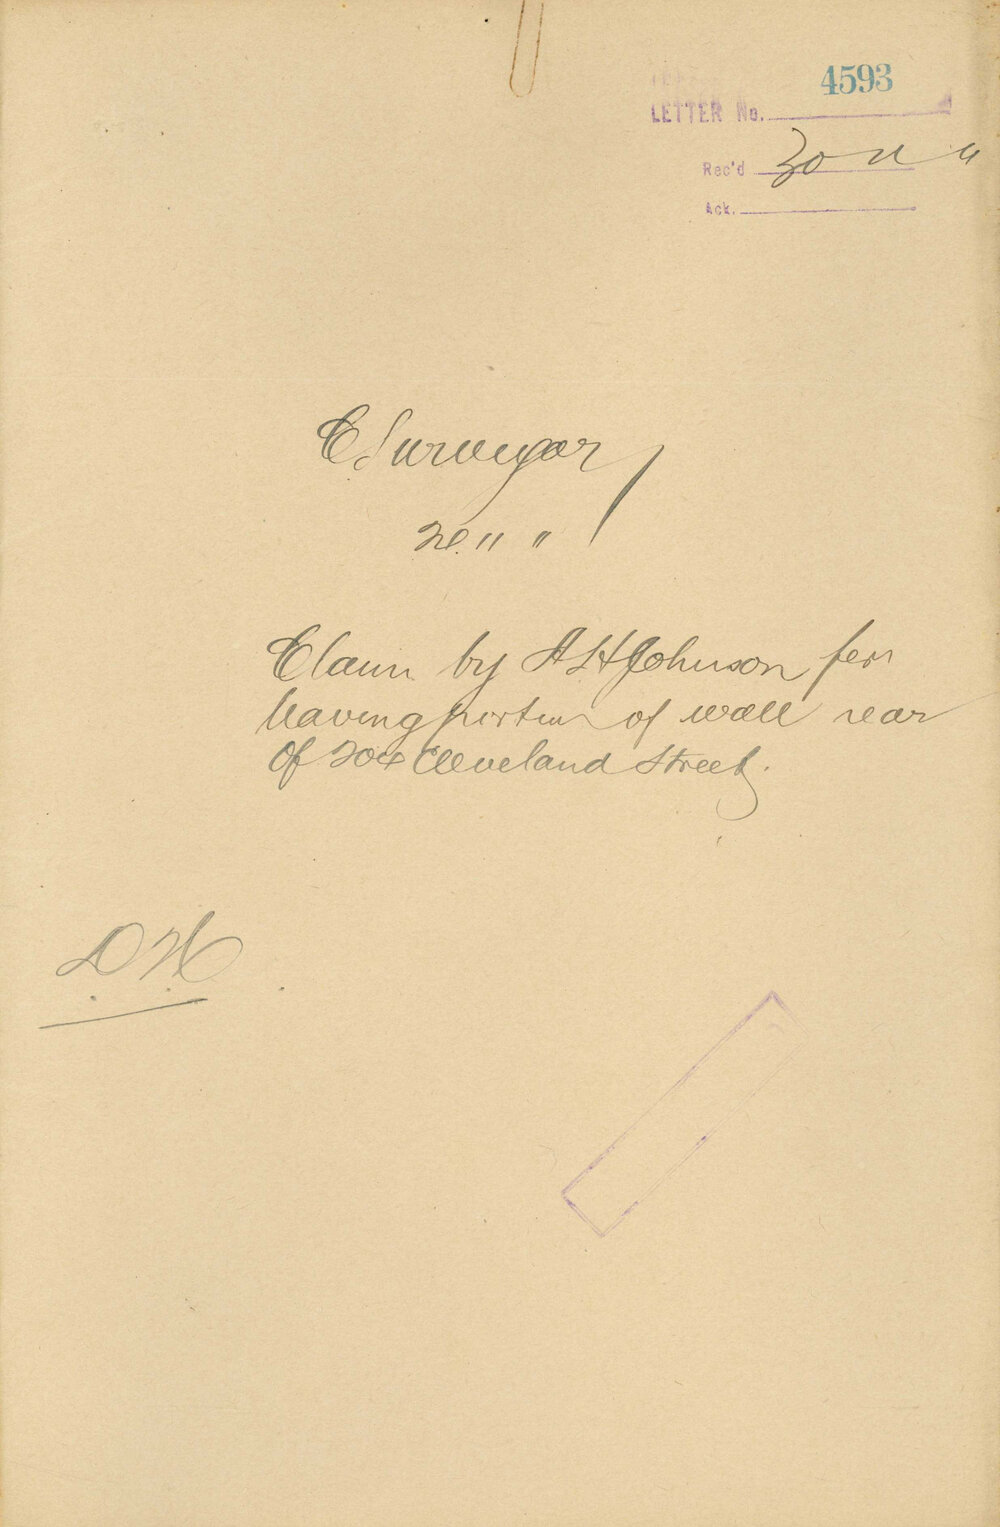 4593
LETTER No.
Rec'd 30 11 11
Ack.
C Surveyor
28 " "
Claim by A H Johnson for
leaving portion of wall rear
of 204 Cleveland Street.
D H